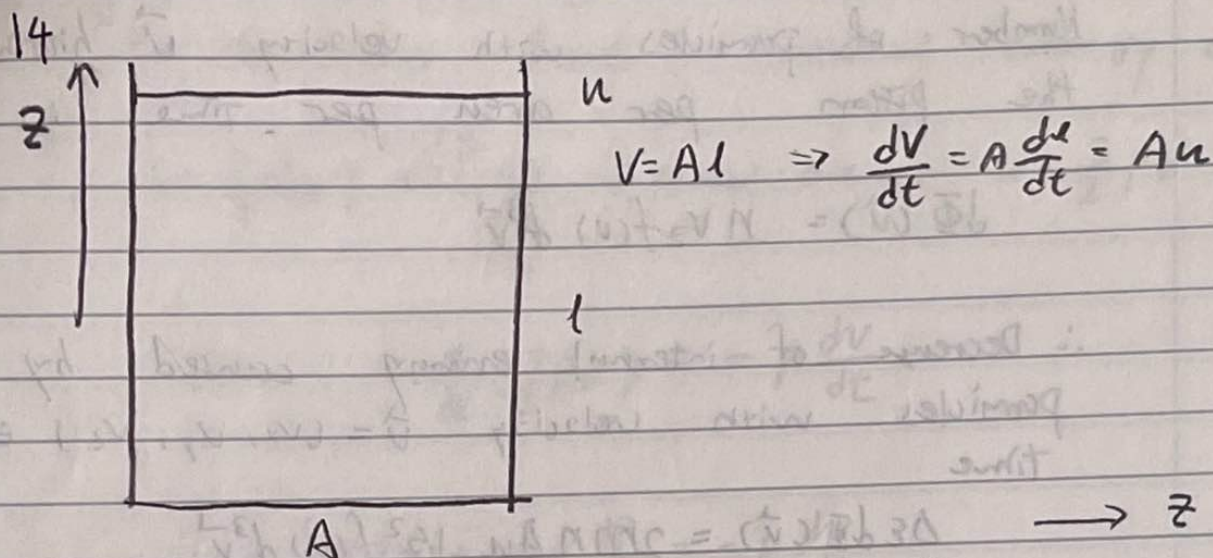 14
z
u
V = Al ⇒ dV/dt = A dl/dt = Au
l
A
→ z